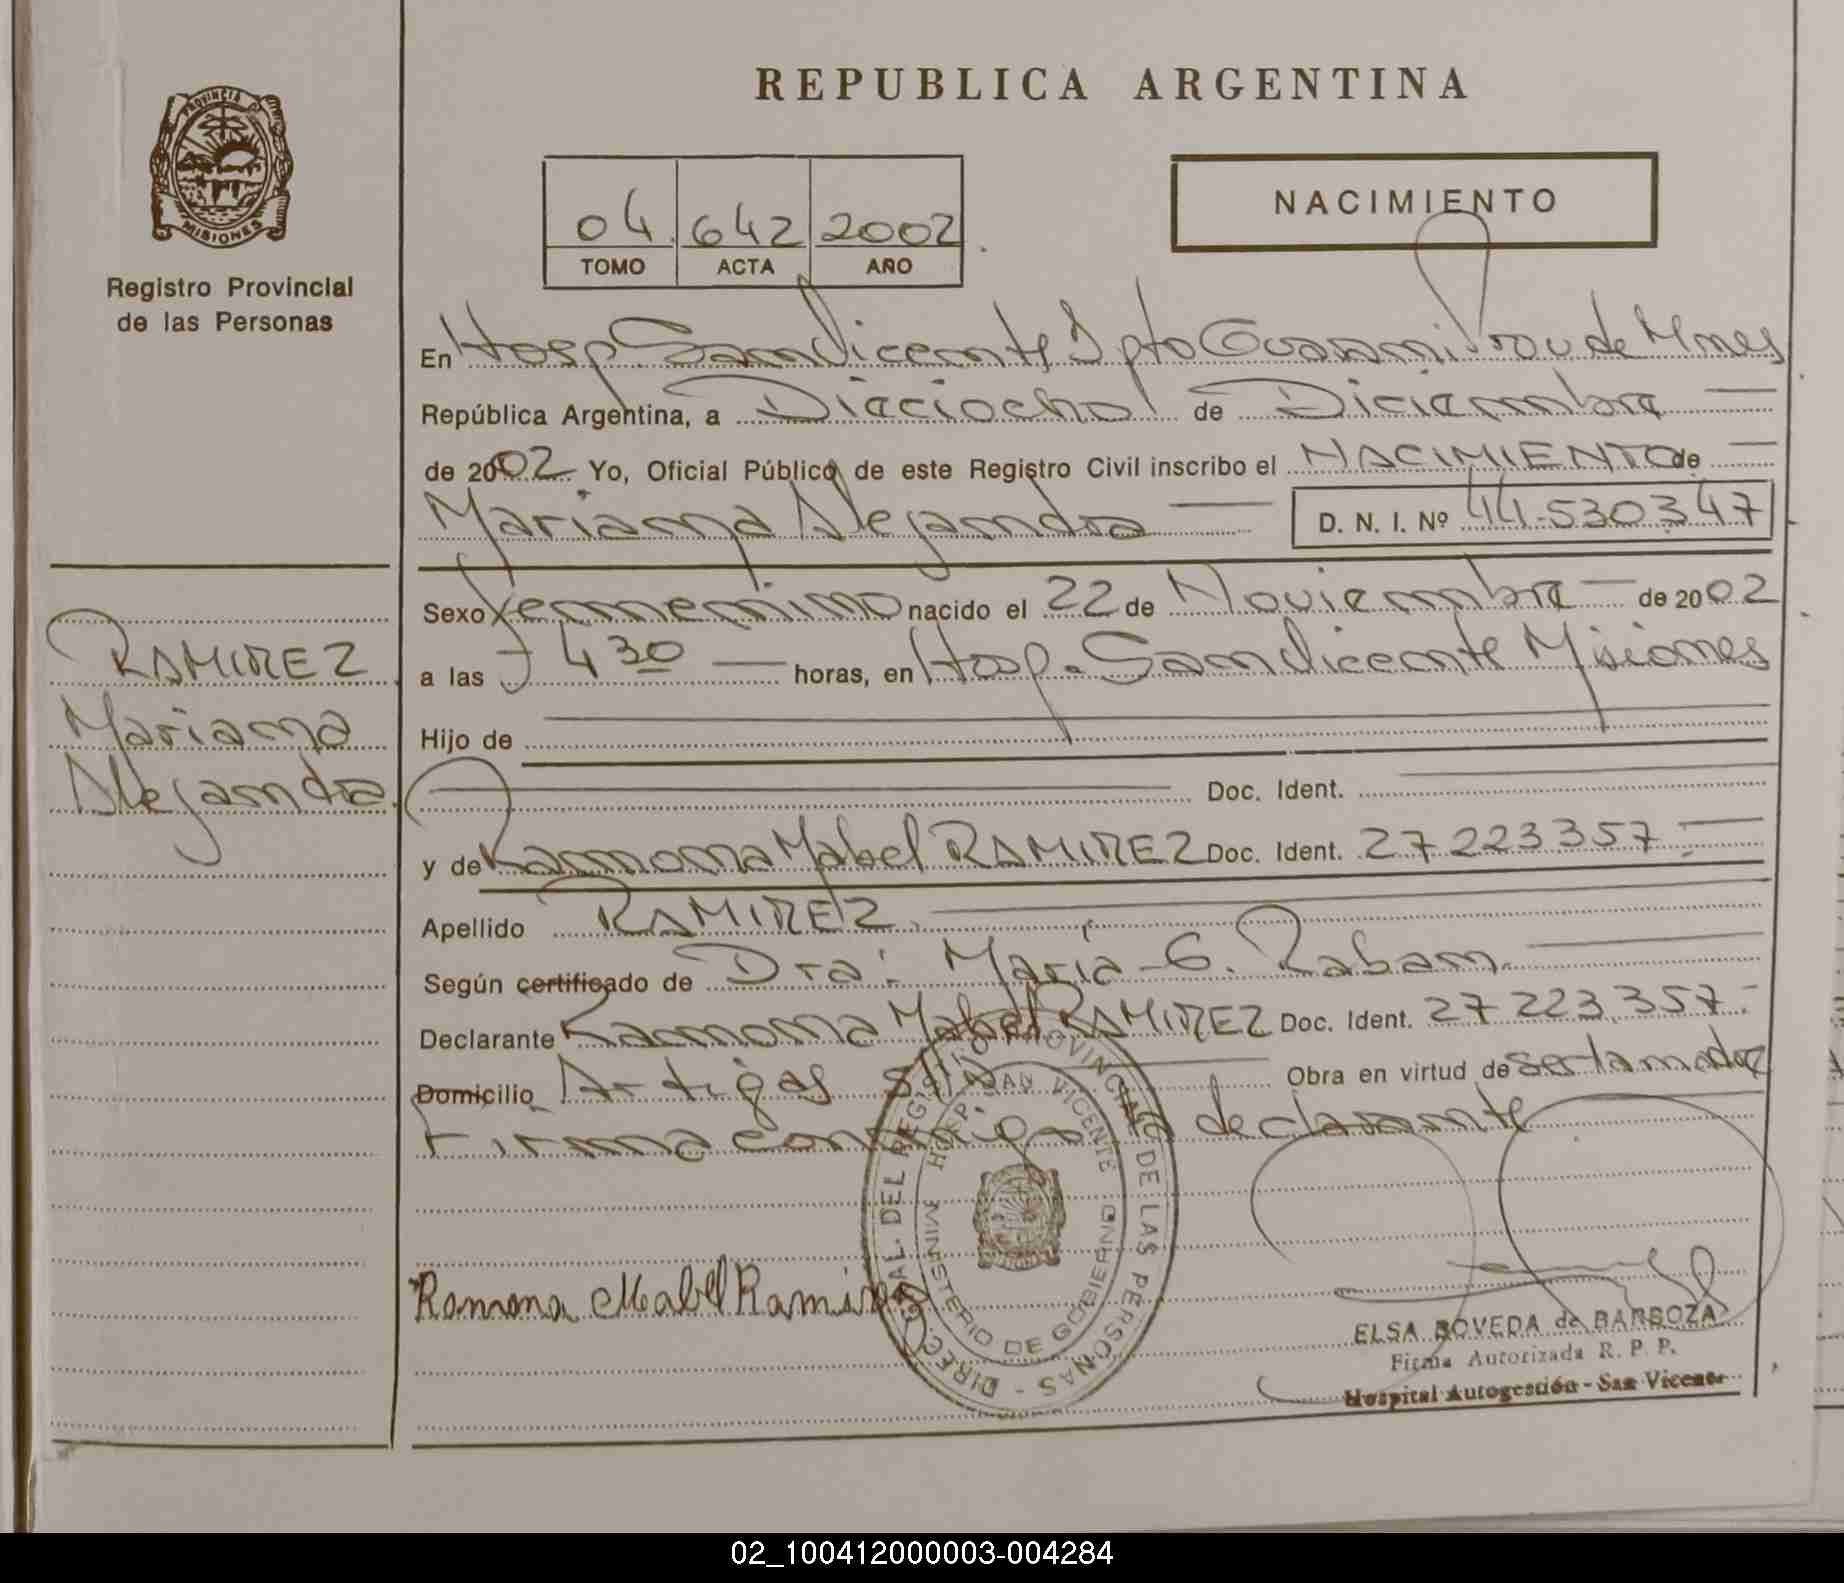 REPUBLICA ARGENTINA
PROVINCIA DE
MISIONES
Registro Provincial
de las Personas
04 642 2002
TOMO ACTA AÑO
NACIMIENTO
En Hosp San Vicente Dpto Guarani Prov de Mnes
República Argentina, a Dieciocho de Diciembre
de 2002 Yo, Oficial Público de este Registro Civil inscribo el NACIMIENTO de
Mariana Alejandra D. N. I. Nº 44.530347
Sexo Femenino nacido el 22 de Noviembre de 2002
a las 430 horas, en Hosp. San Vicente Misiones
Hijo de
Doc. Ident.
y de Ramona Mabel RAMIREZ Doc. Ident. 27 223357
Apellido RAMIREZ
Según certificado de Dra: Maria G. Raban
Declarante Ramona Mabel RAMIREZ Doc. Ident. 27 223.357
Domicilio Artigas S/Nº Obra en virtud de ser la madre
Firma conmigo declarante
RAMIREZ
Mariana
Alejandra
DIREC. GRAL. DEL REGISTRO PROVINCIAL DE LAS PERSONAS
HOSP. SAN VICENTE
MINISTERIO DE GOBIERNO
Ramona Mabel Ramirez
ELSA BOVEDA de BARBOZA
Firma Autorizada R. P. P.
Hospital Autogestión - San Vicente
02_100412000003-004284